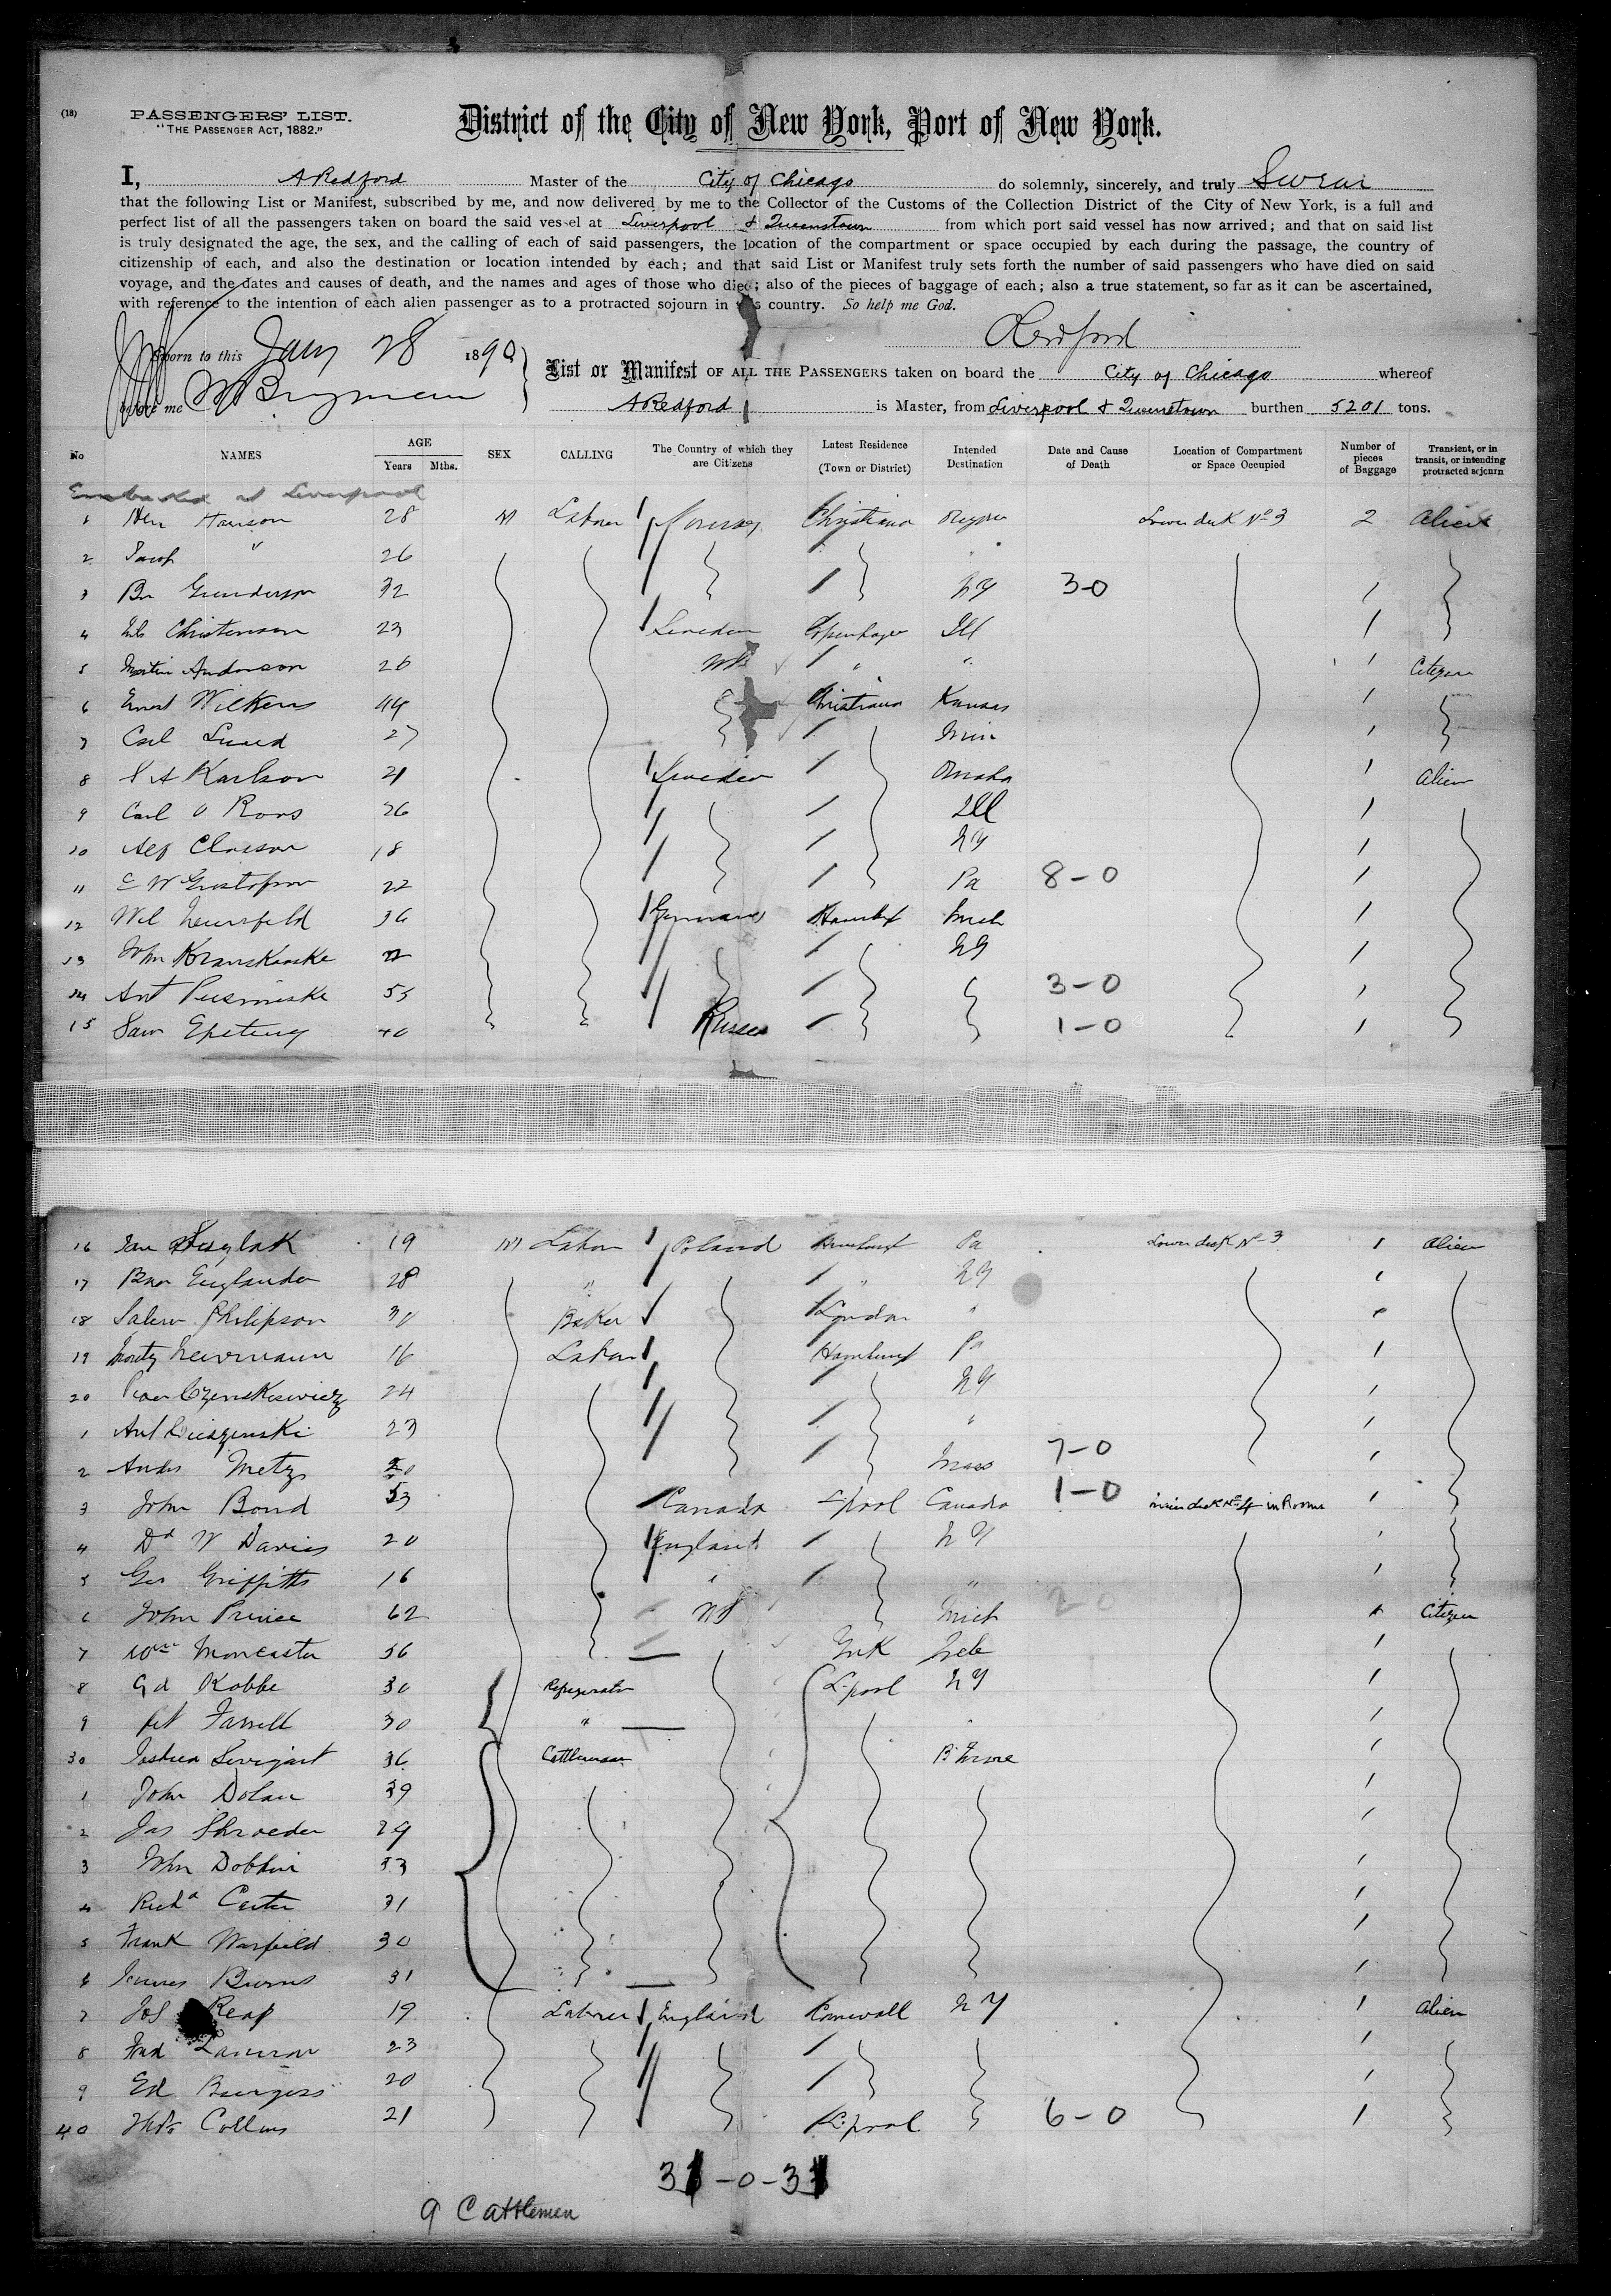 (18)
PASSENGERS' LIST.
"THE PASSENGER ACT, 1882."
District of the City of New York, Port of New York.
I, A Redford Master of the City of Chicago do solemnly, sincerely, and truly Swear
that the following List or Manifest, subscribed by me, and now delivered by me to the Collector of the Customs of the Collection District of the City of New York, is a full and
perfect list of all the passengers taken on board the said vessel at Liverpool & Queenstown from which port said vessel has now arrived; and that on said list
is truly designated the age, the sex, and the calling of each of said passengers, the location of the compartment or space occupied by each during the passage, the country of
citizenship of each, and also the destination or location intended by each; and that said List or Manifest truly sets forth the number of said passengers who have died on said
voyage, and the dates and causes of death, and the names and ages of those who died; also of the pieces of baggage of each; also a true statement, so far as it can be ascertained,
with reference to the intention of each alien passenger as to a protracted sojourn in this country. So help me God.
Redford
Sworn to this Jany 28 1890
before me
List or Manifest OF ALL THE PASSENGERS taken on board the City of Chicago whereof
A Redford is Master, from Liverpool & Queenstown burthen 5201 tons.
No NAMES AGE Years Mths. SEX CALLING The Country of which they are Citizens Latest Residence (Town or District) Intended Destination Date and Cause of Death Location of Compartment or Space Occupied Number of pieces of Baggage Transient, or in transit, or intending protracted sojourn
Embarked at Liverpool
1 Hanson 28 M Labour Norway Christiana Lower deck No 3 2 Alien
2 Jacob " 26
3 Gunderson 32 NY 3-0 1
4 Christensen 23 Sweden Copenhagen Ill 1
5 Martin Anderson 26 " " 1 Citizen
6 Ernest Wilkens 44 Christiana Kansas 1
7 Carl Lund 27 Minn 1
8 Karlson 21 Sweden Omaha 1 Alien
9 Carl O Roos 26 Ill 1
10 Alf Classon 18 NY 1
11 C W Gustafson 22 Pa 8-0 1
12 Wil 36 Germany Hamburg Mich 1
13 John 22 NY 1
14 Ant 53 3-0 1
15 Sam 40 Russia 1-0 1
16 Jan 19 M Labour Poland Hamburg Pa Lower deck No 3 1 Alien
17 Englander 28 " " NY 1
18 Philipson 30 Baker London " 1
19 Moritz Neumann 16 Labour Hamburg Pa 1
20 24 NY 1
1 Ant 23 " 1
2 Metz 20 Mass 7-0 1
3 John Bond 53 Canada L'pool Canada 1-0 main deck No 4 in Rooms 1
4 Dd W Davies 20 England NY 1
5 Geo Griffiths 16 " " 1
6 John Prince 62 US Mich 2-0 1 Citizen
7 Wm Moncaster 36 York Neb 1
8 Gd Kobbe 30 Refrigerator L'pool NY 1
9 Pat Farrell 30 " 1
30 Joshua 36 Cattleman B'more 1
1 John Dolan 39 1
2 Jas Shroeder 29 1
3 John Dobbin 33 1
4 Richd Carter 31 1
5 Frank Warfield 30 1
6 James Burns 31 1
7 Jos Reap 19 Labourer England Cornwall NY 1 Alien
8 Fred 23 1
9 Ed Burgess 20 1
40 Thos Collins 21 L'pool 6-0 1
9 Cattlemen